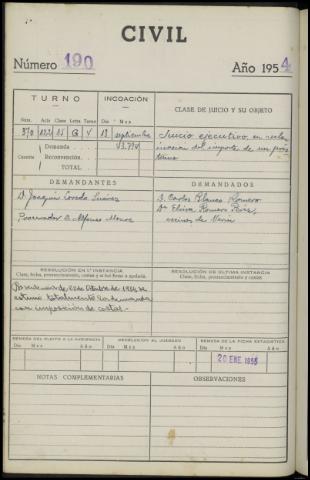 CIVIL
Número 190 Año 1954
TURNO INCOACIÓN CLASE DE JUICIO Y SU OBJETO
Núm. Acta Clase Letra Turno Día Mes
Demanda
Cuantía Reconvención
TOTAL
Juicio ejecutivo, en
del importe de un
DEMANDANTES DEMANDADOS
D. Joaquín Suárez
Procurador D. Alfonso
D. Carlos Blanco Romero
Dª Elvira Romero
vecinos de
RESOLUCIÓN EN 1.ª INSTANCIA RESOLUCIÓN DE ÚLTIMA INSTANCIA
Clase, fecha, pronunciamiento, costas y si fué firme o apelada. Clase, fecha, pronunciamiento y costas
Por sentencia de Octubre de 1954 se
estimó totalmente la demanda
con imposición de costas.
REMESA DEL PLEITO A LA AUDIENCIA DEVOLUCIÓN AL JUZGADO REMESA DE LA FICHA ESTADÍSTICA
Día Mes Año Día Mes Año Día Mes Año
20 ENE 1955
NOTAS COMPLEMENTARIAS OBSERVACIONES